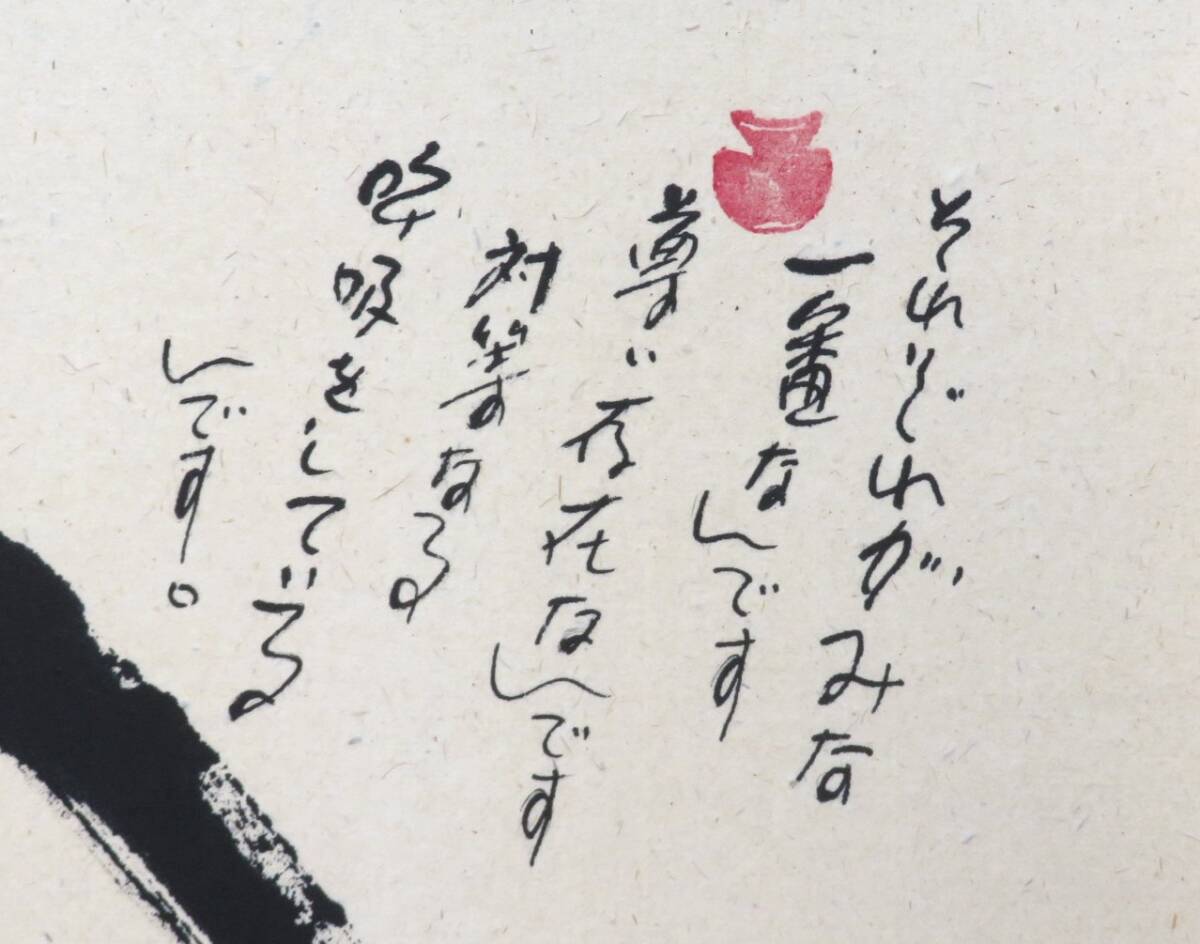 それぞれがみな
一番なんです
尊い存在なんです
対等なる
呼吸をしている
んです。